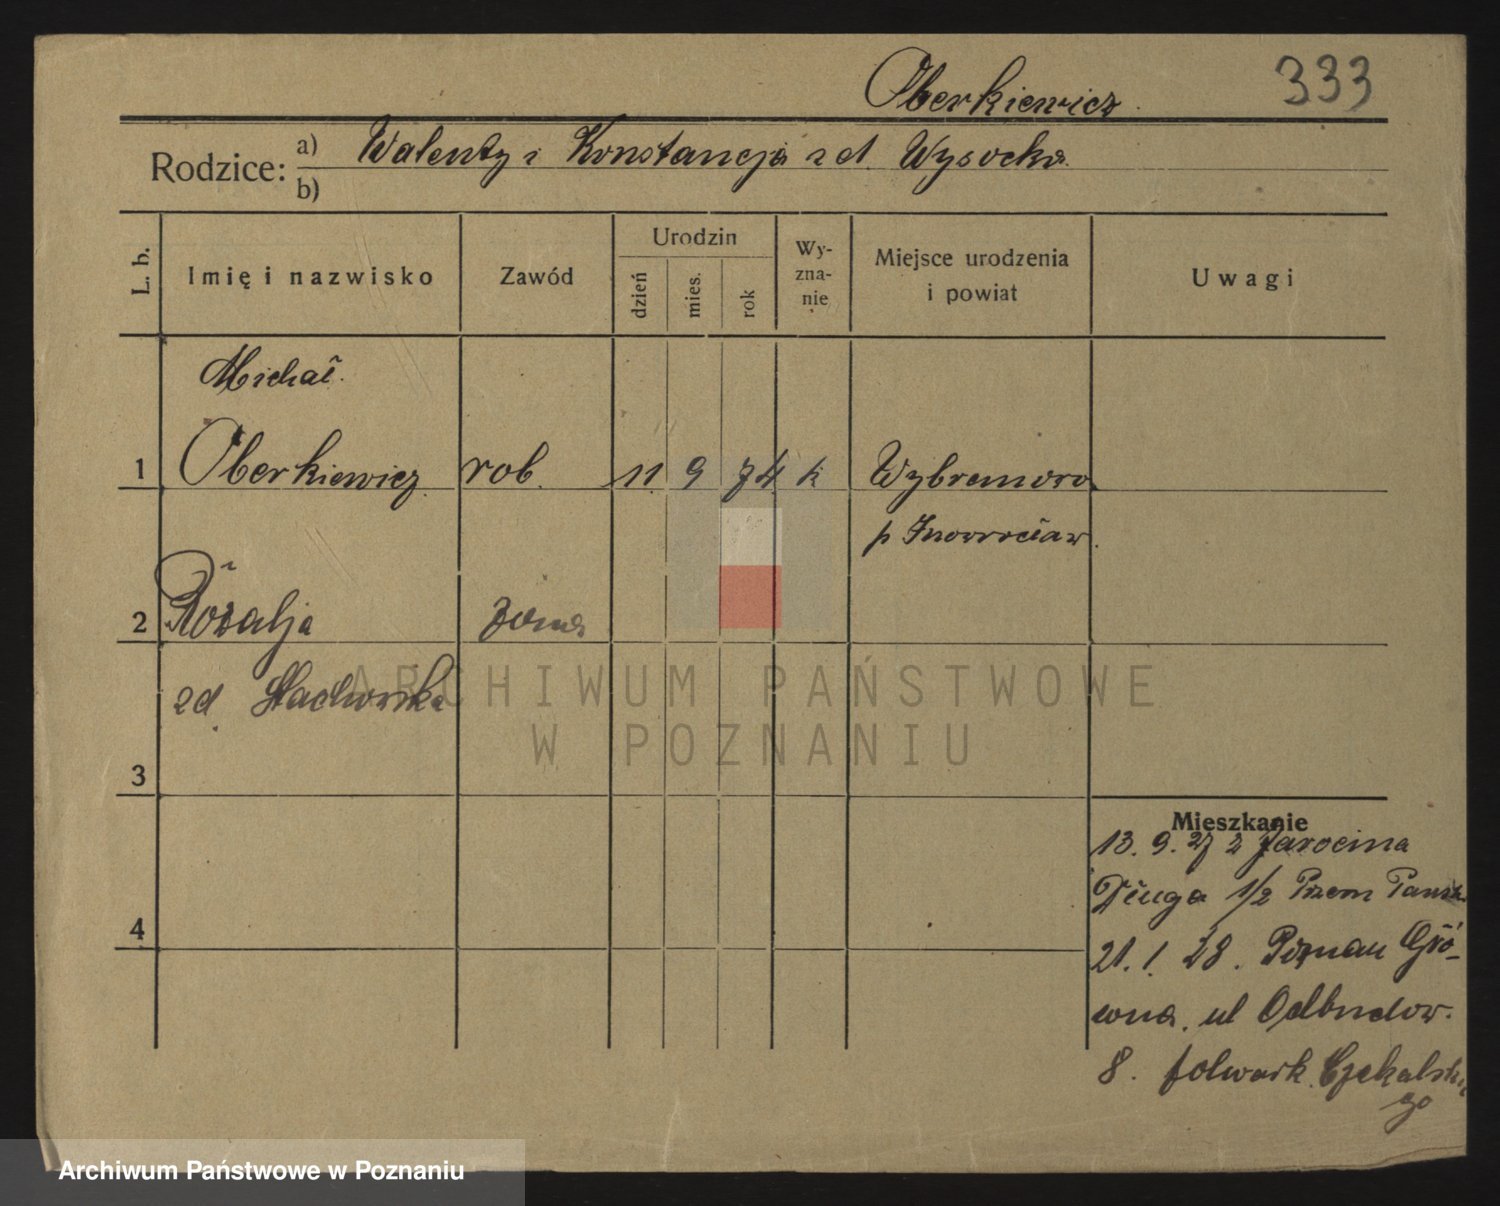 Oberkiewicz. 333
Rodzice: a) Walenty i Konstancja z d. Wysocka.
b)
L. b. Imię i nazwisko Zawód Urodzin dzień mies. rok Wy-zna-nie Miejsce urodzenia i powiat Uwagi
Michał.
1 Oberkiewicz rob. 11 9 74 k Wybranowo
p Inowrocław.
2 Rozalja żona
zd. Stachowska
ARCHIWUM PAŃSTWOWE
W POZNANIU
3
Mieszkanie
13. 9. 27 z Jarocina
Długa 1/2 Przem
4
21. 1. 28. Poznań Głó-
wna, ul Odbudow.
8. folwark Czekalskie
go
Archiwum Państwowe w Poznaniu